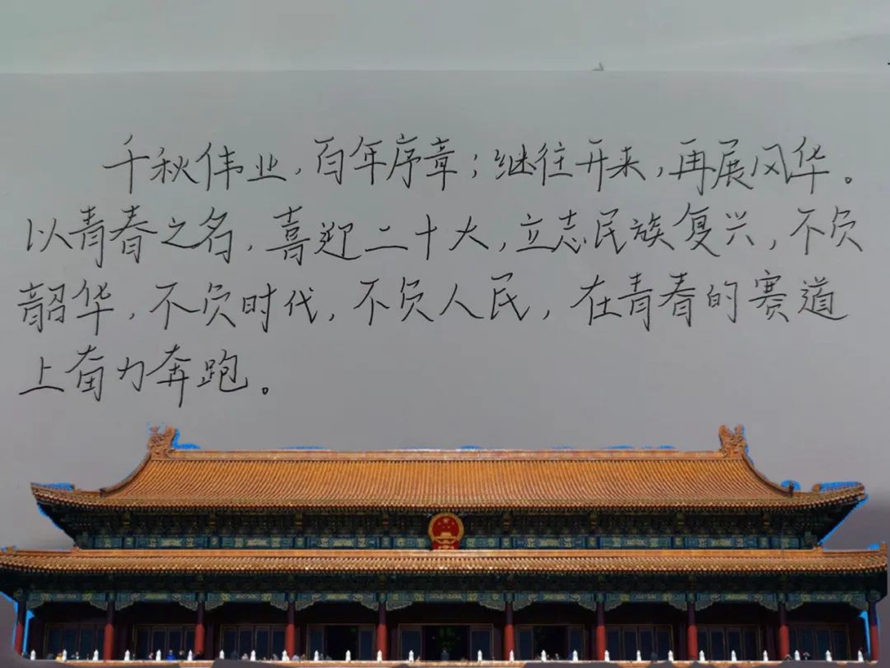 千秋伟业，百年序章；继往开来，再展风华。
以青春之名，喜迎二十大，立志民族复兴，不负
韶华，不负时代，不负人民，在青春的赛道
上奋力奔跑。